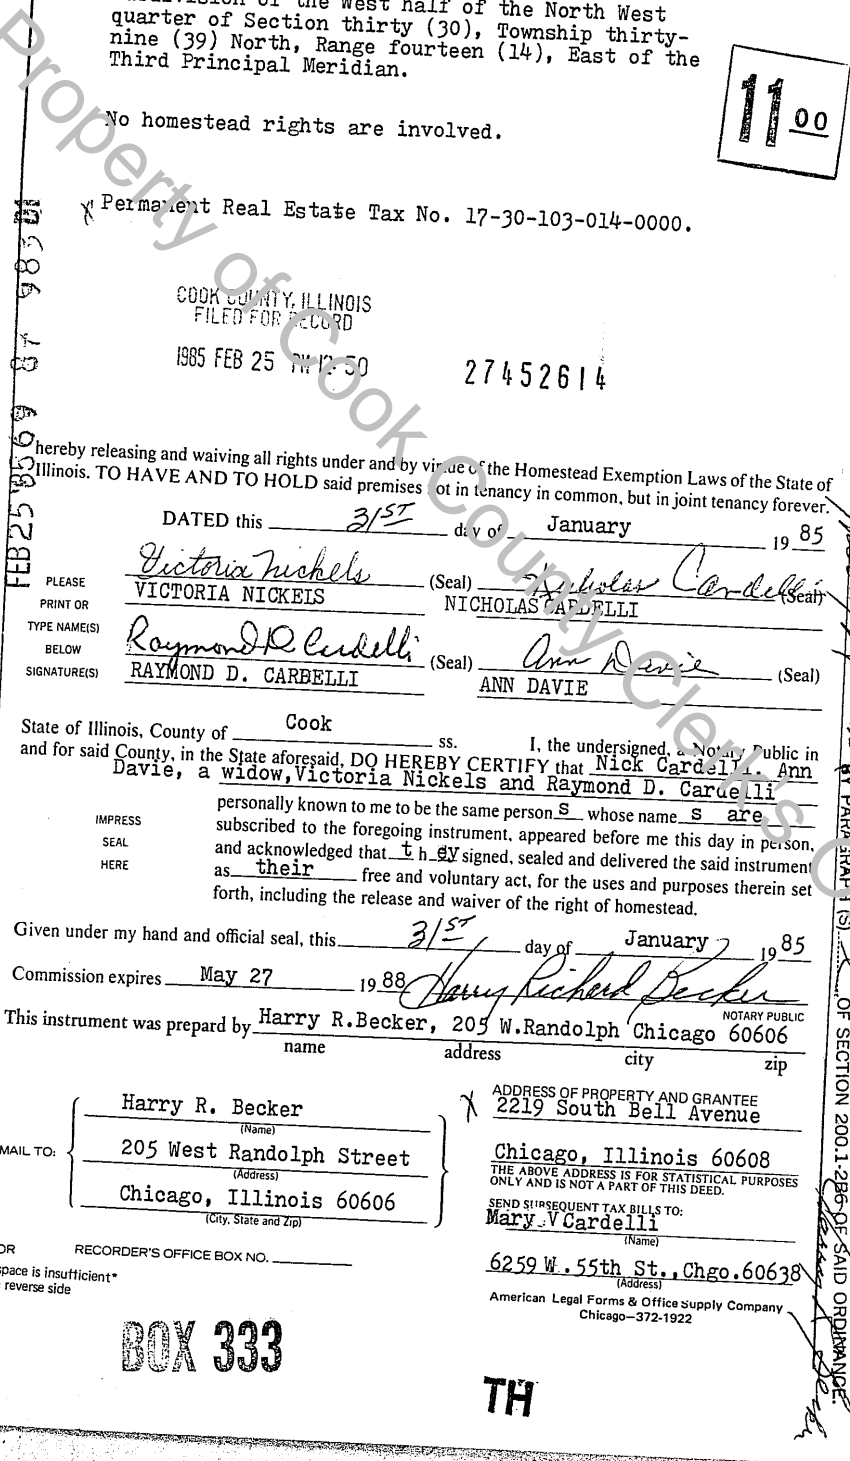 the West half of the North West
quarter of Section thirty (30), Township thirty-
nine (39) North, Range fourteen (14), East of the
Third Principal Meridian.
11 00
No homestead rights are involved.
Permanent Real Estate Tax No. 17-30-103-014-0000.
COOK COUNTY, ILLINOIS
FILED FOR RECORD
1985 FEB 25 PM 12 50
27452614
hereby releasing and waiving all rights under and by virtue of the Homestead Exemption Laws of the State of
Illinois. TO HAVE AND TO HOLD said premises not in tenancy in common, but in joint tenancy forever.
DATED this 31ST day of January 19 85
Victoria Nickels (Seal) Nicholas Cardelli (Seal)
PLEASE VICTORIA NICKELS NICHOLAS CARDELLI
PRINT OR
TYPE NAME(S)
BELOW Raymond D Cardelli (Seal) Ann Davie (Seal)
SIGNATURE(S) RAYMOND D. CARBELLI ANN DAVIE
State of Illinois, County of Cook ss. I, the undersigned, a Notary Public in
and for said County, in the State aforesaid, DO HEREBY CERTIFY that Nick Cardelli. Ann
Davie, a widow, Victoria Nickels and Raymond D. Cardelli
personally known to me to be the same person s whose name s are
IMPRESS
SEAL
HERE
subscribed to the foregoing instrument, appeared before me this day in person,
and acknowledged that t h ey signed, sealed and delivered the said instrument
as their free and voluntary act, for the uses and purposes therein set
forth, including the release and waiver of the right of homestead.
Given under my hand and official seal, this 31ST day of January 19 85
Commission expires May 27 19 88 Harry Richard Becker
NOTARY PUBLIC
This instrument was prepard by Harry R.Becker, 205 W.Randolph Chicago 60606
name address city zip
MAIL TO:
Harry R. Becker
(Name)
205 West Randolph Street
(Address)
Chicago, Illinois 60606
(City, State and Zip)
OR RECORDER'S OFFICE BOX NO.
space is insufficient*
reverse side
BOX 333
ADDRESS OF PROPERTY AND GRANTEE
2219 South Bell Avenue
Chicago, Illinois 60608
THE ABOVE ADDRESS IS FOR STATISTICAL PURPOSES
ONLY AND IS NOT A PART OF THIS DEED.
SEND SUBSEQUENT TAX BILLS TO:
Mary V Cardelli
(Name)
6259 W. 55th St., Chgo. 60638
(Address)
American Legal Forms & Office Supply Company
Chicago—372-1922
TH
FEB 25
BY PARAGRAPH (S) OF SECTION 200.1-2B6 OF SAID ORDINANCE.
Property of Cook County Clerk's